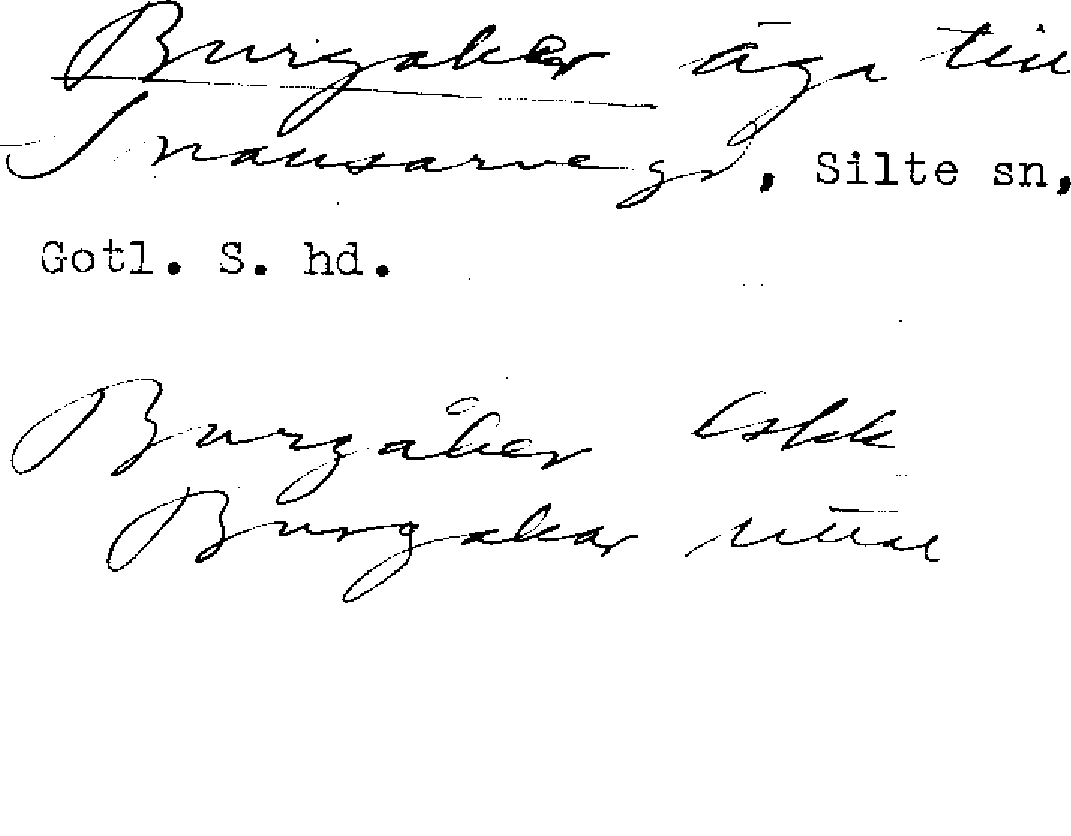 Burgaker äga till
Snausarve gd, Silte sn,
Gotl. S. hd.
Burgåker Lskk
Burgakar